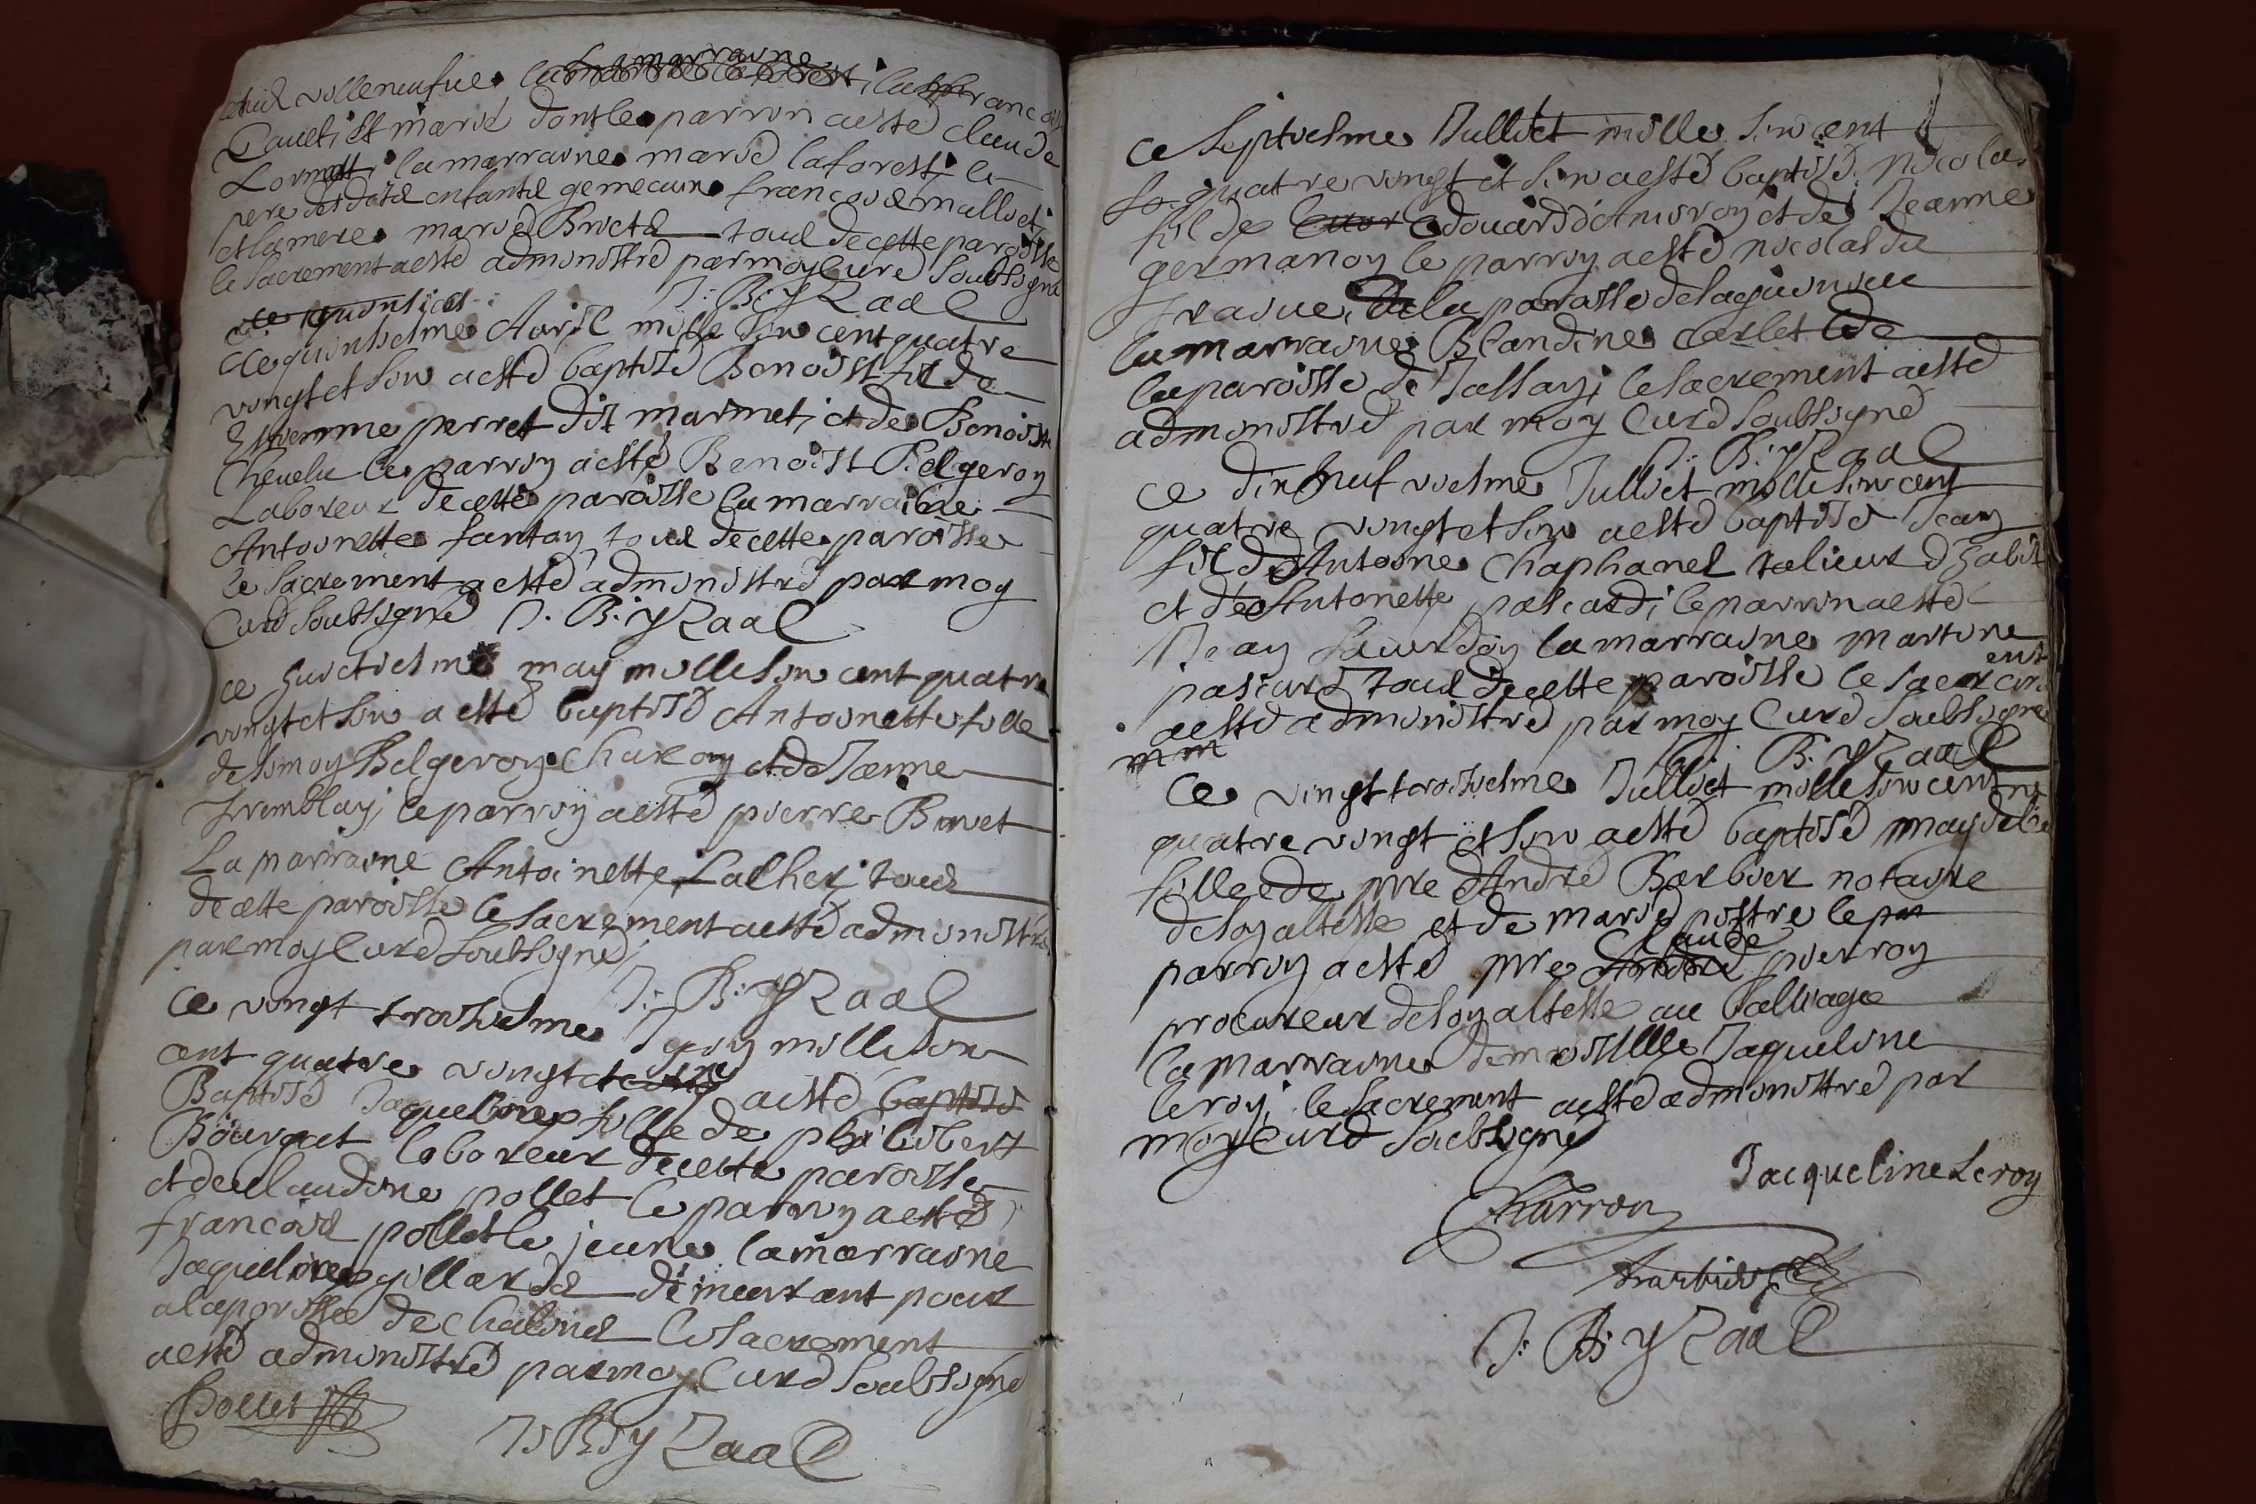 la marraine
villeneufue
et marie dont le parrin a esté claude
la marraine marie laforest le
pere desdatz enfantz francois mulliet
et la mere marie touz de cette paroisse
le sacrement a esté administré par moy curé soubsigné
J: B: yzaac
ce quinsiesme Avril mille six cent quatre
vingt et six a esté baptisé Benoist fil de
Estienne perret dit marmet, et de Benoiste
Chevelu le parrin a esté Benoist Belgeron
Laboreur de cette paroisse la marraine
Antoinette fantan touz de cette paroisse
le sacrement a esté administré par moy
Curé soubsigné J. B. yzaac
ce huictiesme may mille six cent quatre
vingt et six a esté baptisé Antoinette fille
de simon Belgeron Charon et de Janne
Tremblay, le parrin a esté pierre Buvet
La marraine Antoinette touz
de cette paroisse le sacrement a esté administré
par moy Curé soubsigné
J: B: yzaac
ce vingt troisiesme Juin mille six
cent quatre vingt et six a esté baptisé
Baptisé Jaqueline fille de philibert
Bourgat laboreur de cette paroisse
et de claudine pollet le parrin a esté
francois pollet le jeune la marraine
Jaqueline gillarde demeurant pour
a la paroisse de le sacrement
a esté administré par moy Curé soubsigné
Pollet
J: B: y zaac
ce septiesme Julliet mille six cent
quatre vingt et six a esté baptisé nicolas
fil de edouard et de Jeanne
germanoy le parrin a esté nicolas du
de la paroisse de
la marraine Blandine Carlet de
la paroisse de Jassay, le sacrement a esté
administré par moy Curé soubsigné
J: B: yzaac
ce dix neuf viesme Julliet mille six cent
quatre vingt et six a esté baptisé Jean
fil d'Antoine Chaphanel talieur d'habit
et de Antonette pascard, le parrin a esté
Jean la marraine martine
pascard touz de cette paroisse le sacrement
a esté administré par moy Curé soubsigné
J. B. yzaac
Ce vingt troisiesme Julliet mille six cent
quatre vingt et six a esté baptisé
fille de mre André Barbier notaire
de son altesse et de marie le
parrin a esté mre Claude pierron
procureur de son altesse au balliage
la marraine demoiselle Jaqueline
leroy, le sacrement a esté administré par
moy Curé soubsigné
Jacqueline Leroy
Charron
J: B: yzaac